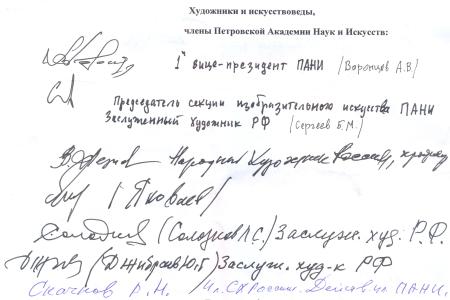 Художники и искусствоведы,
члены Петровской Академии Наук и Искусств:
1й вице-президент ПАНИ (Воронцов А.В)
Председатель секции изобразительного искусства ПАНИ
Заслуженный Художник РФ (Сергеев Б.М.)
Народный Художник России,
(Яковлев)
(Солодков Л.С.) Заслуж. худ. Р.Ф.
(Джибраев Ю.Б) Заслуж. худ-к РФ
Скачков В.Н. Чл. СХ России. Действ. чл ПАНИ.